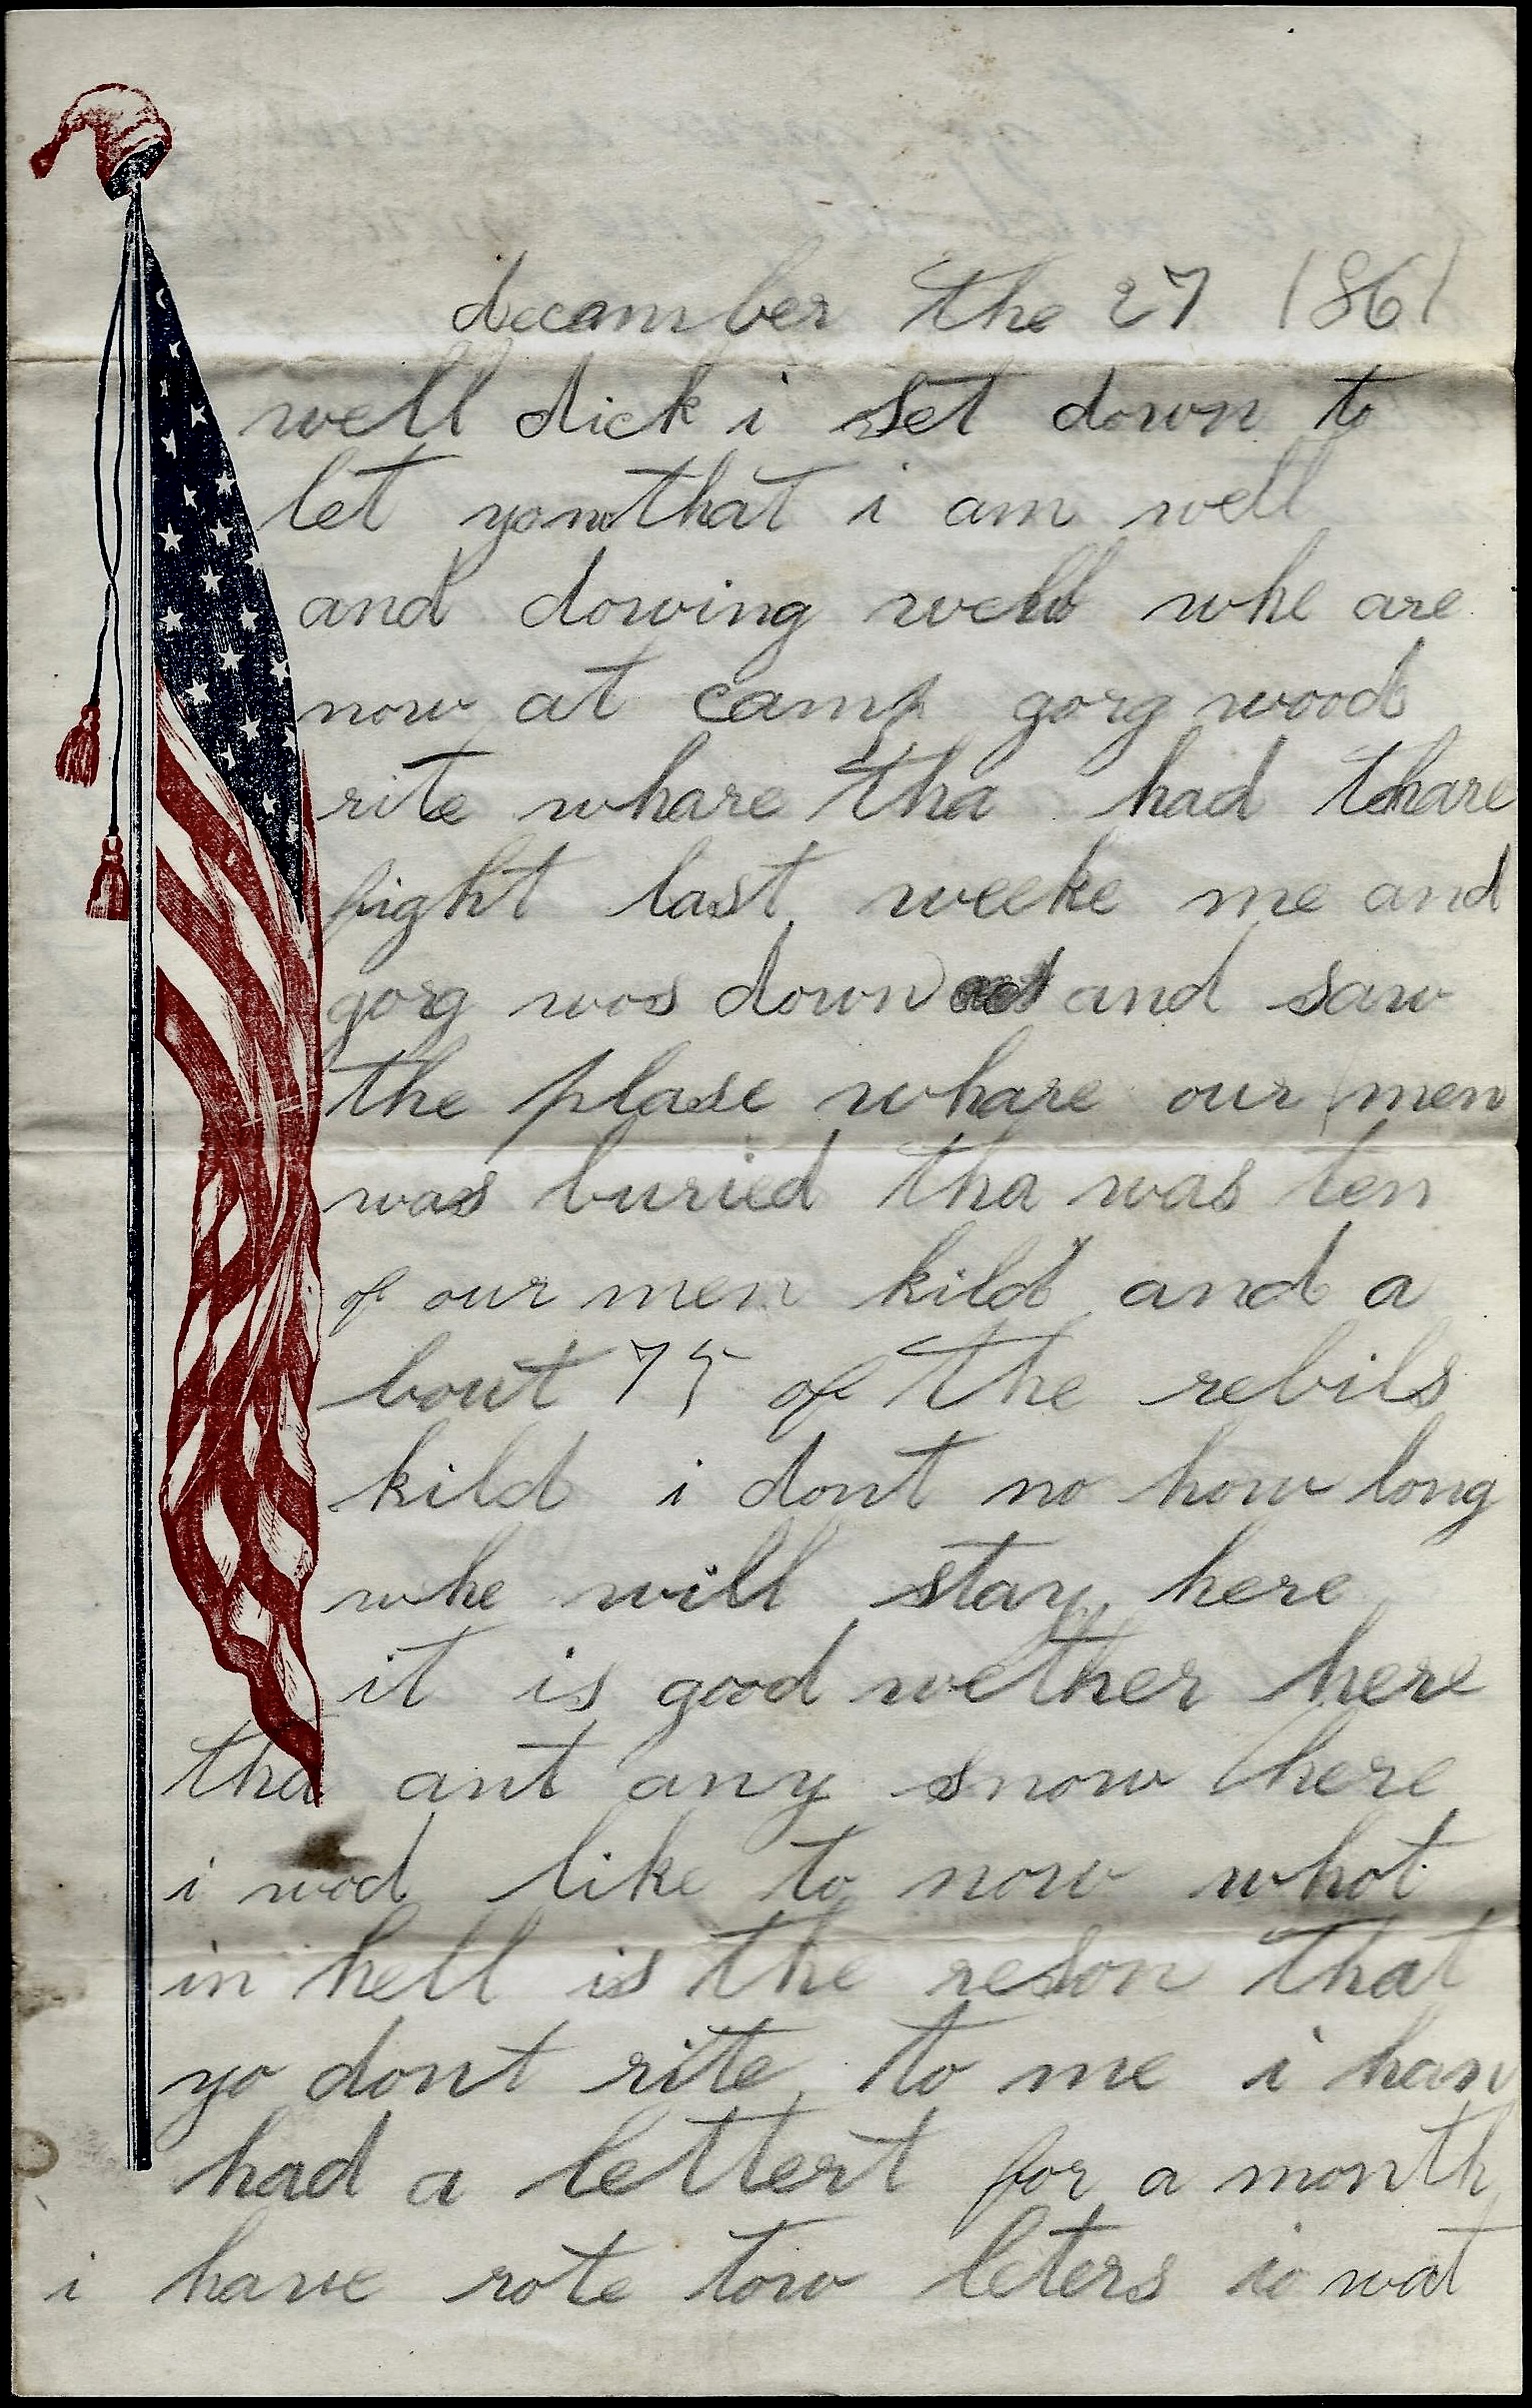 decamber the 27 1861
well dick i set down to
let you that i am well
and dowing well whe are
now at camp gorg wood
rite whare tha had thare
fight last weeke me and
gorg wos down and saw
the plase whare our men
was buried tha was ten
of our men kild and a
bout 75 of the rebils
kild i dont no how long
whe will stay here
it is good wether here
tha ant any snow here
i wod like to now whot
in hell is the reson that
yo dont rite to me i han
had a lettert for a month
i have rote tow leters wat